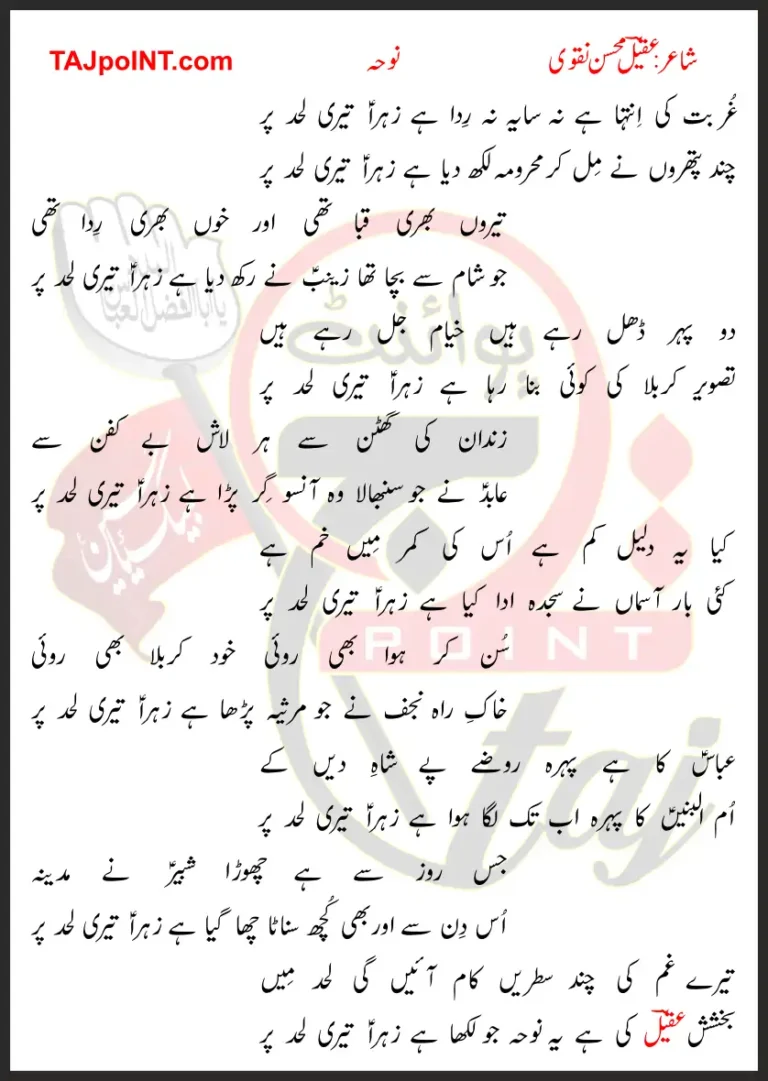 شاعر: عقیل محسن نقوی نوحہ TAJpoINT.com
غُربت کی اِنتہا ہے نہ سایہ نہ رِدا ہے زہراؑ تیری لحد پر
چند پتھروں نے مِل کر محرومہ لکھ دیا ہے زہراؑ تیری لحد پر
تیروں بھری قبا تھی اور خوں بھری رِدا تھی
جو شام سے بچا تھا زینبؑ نے رکھ دیا ہے زہراؑ تیری لحد پر
دو پہر ڈھل رہے ہیں خیام جل رہے ہیں
تصویرِ کربلا کی کوئی بنا رہا ہے زہراؑ تیری لحد پر
زندان کی گھٹن سے ہر لاش بے کفن سے
عابدؑ نے جو سنبھالا وہ آنسو گِر پڑا ہے زہراؑ تیری لحد پر
کیا یہ دلیل کم ہے اُس کی کمر مِیں خم ہے
کئی بار آسماں نے سجدہ ادا کیا ہے زہراؑ تیری لحد پر
سُن کر ہوا بھی روئی خود کربلا بھی روئی
خاکِ راہ نجف نے جو مرثیہ پڑھا ہے زہراؑ تیری لحد پر
عباسؑ کا ہے پہرہ روضے پے شاہِ دیں کے
اُم البنینؑ کا پہرہ اب تک لگا ہوا ہے زہراؑ تیری لحد پر
جس روز سے ہے چھوڑا شبیرؑ نے مدینہ
اُس دِن سے اور بھی کُچھ سناٹا چھا گیا ہے زہراؑ تیری لحد پر
تیرے غم کی چند سطریں کام آئیں گی لحد مِیں
بخشش عقیل کی ہے یہ نوحہ جو لکھا ہے زہراؑ تیری لحد پر
پوائنٹ
POINT
taj
لبیک یا حسینؑ